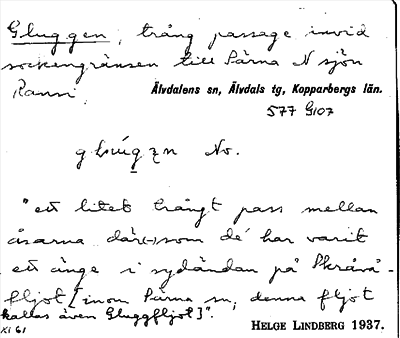 Gluggen, trång passage invid
sockengränsen till Särna N sjön
Ransi,
Älvdalens sn, Älvdals tg, Kopparbergs län.
577 G107
No.
"ett litet trångt pass mellan
åsarna där(-)som dé har varit
ett ånge i sydändan på Skråvå-
fljot [inom Särna sn; denna fljot
kallas även Gluggfljot]".
XI 61
HELGE LINDBERG 1937.